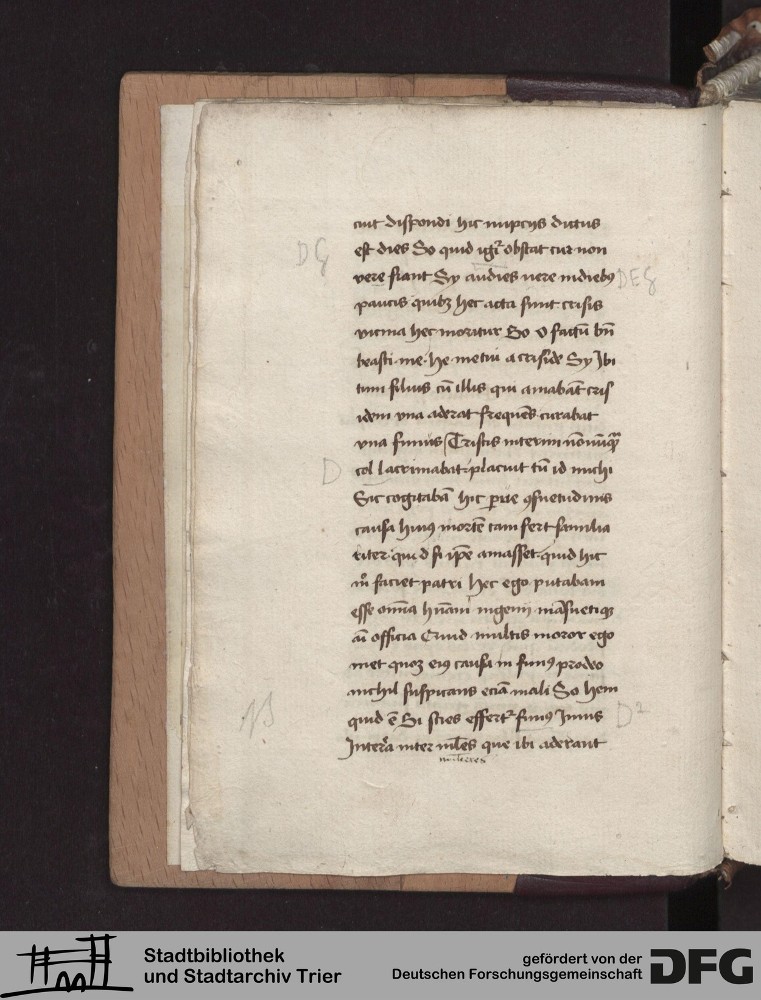 cuit dispondi hic nupcijs dictus
est dies So quid igit᷑ obstat cur non
vere fiant Sy audies uere in diebꝰ
paucis quibꝫ hec acta sunt crisis
vicina hec moritur So o factū bn̄
beasti me he metui a criside Sy Ibi
tum filius cū illis qui amabāt cris
idem vna aderat frequēs curabat
vna funus Tristis interim nōnūqͣ
col lacrimabat placuit tū id michi
Sic cogitabā hic parue ꝯsuetudinis
causa huiꝰ mortē tam fert familia
riter quid si ip̄e amasset quid hic
m̊ faciet patri hec ego putabam
esse om̄ia humani ingenij māsuetiqꝫ
aī officia Quid multis moror ego
met quoqꝫ eiꝰ causa in funꝰ prodeo
nichil suspicans eciā mali So hem
quid ē Si scies effert᷑ funꝰ Imus
Interea inter ml̄es que ibi aderant
mulieres
DG
DEG
D
D²
Stadtbibliothek
und Stadtarchiv Trier
gefördert von der
Deutschen Forschungsgemeinschaft
DFG